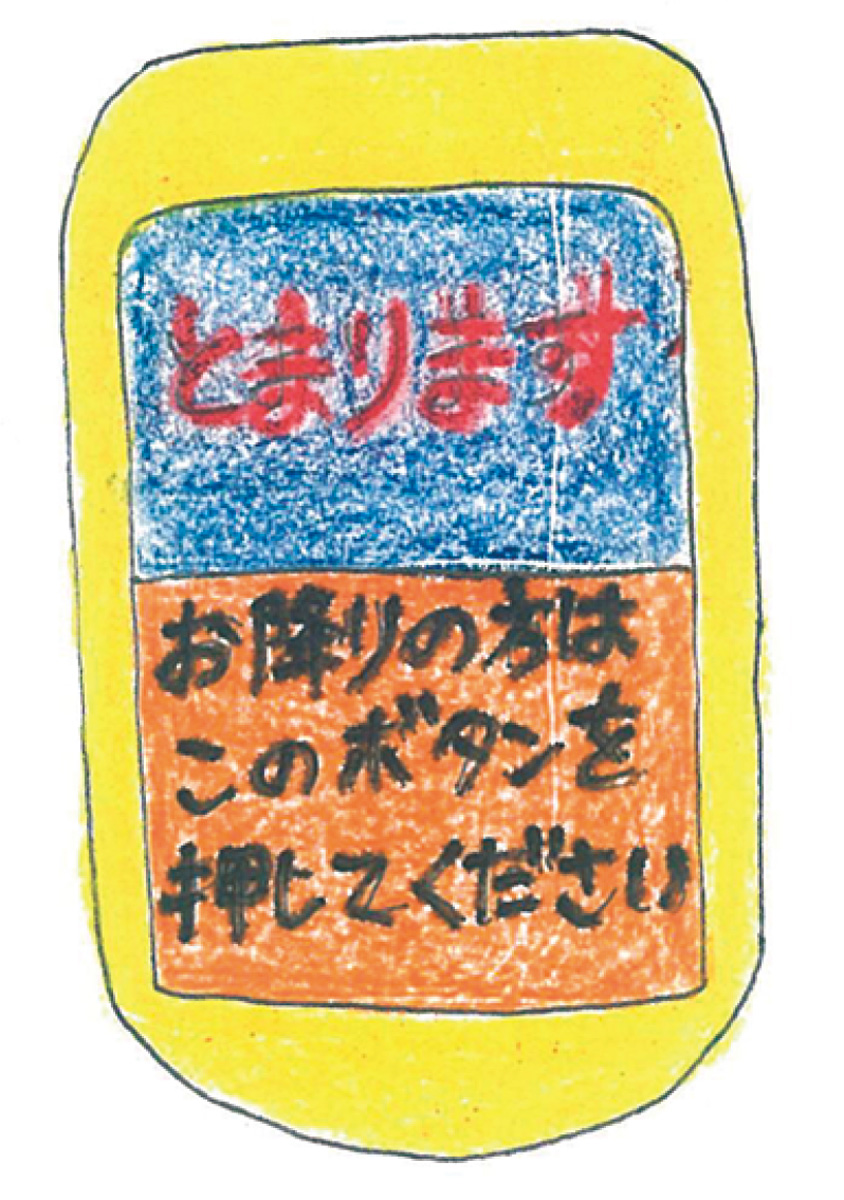 とまります
お降りの方は
このボタンを
押してください